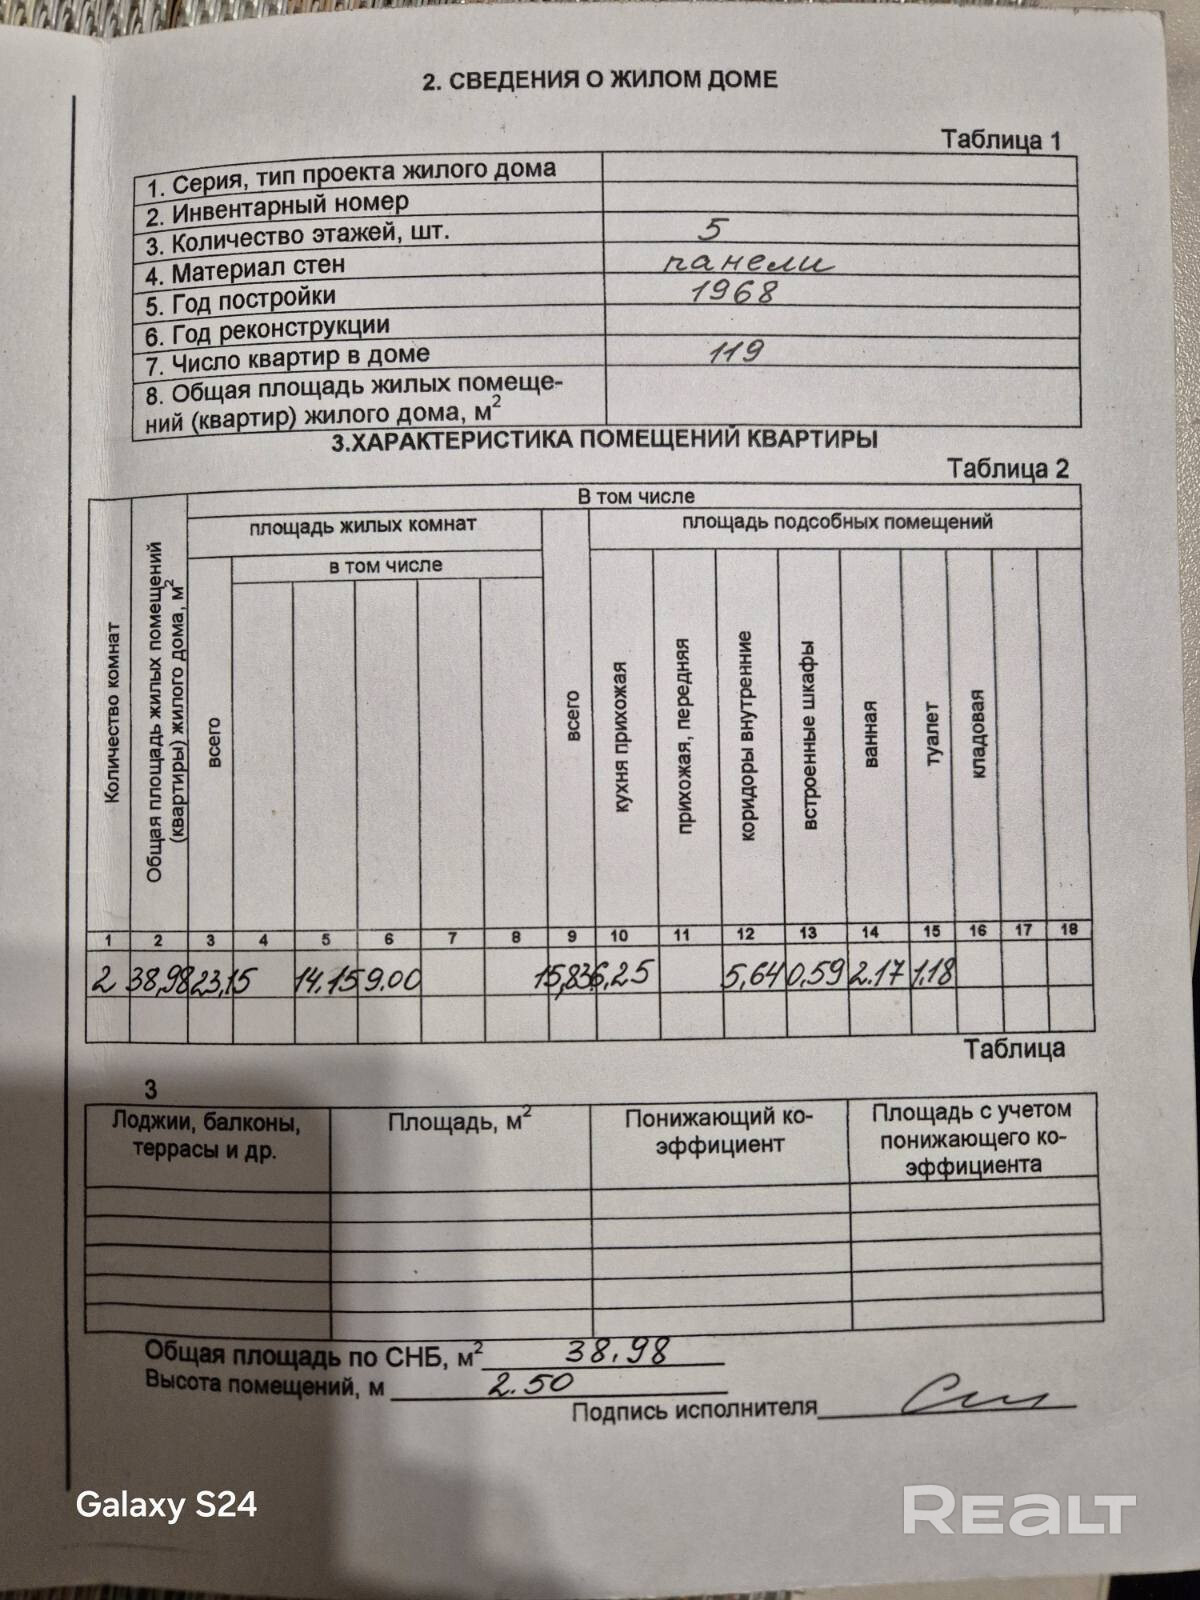 2. СВЕДЕНИЯ О ЖИЛОМ ДОМЕ
Таблица 1
1. Серия, тип проекта жилого дома
2. Инвентарный номер
3. Количество этажей, шт. 5
4. Материал стен панели
5. Год постройки 1968
6. Год реконструкции
7. Число квартир в доме 119
8. Общая площадь жилых помеще-
ний (квартир) жилого дома, м2
3.ХАРАКТЕРИСТИКА ПОМЕЩЕНИЙ КВАРТИРЫ
Таблица 2
В том числе
площадь жилых комнат
площадь подсобных помещений
в том числе
Количество комнат
Общая площадь жилых помещений
(квартиры) жилого дома, м2
всего
всего
кухня прихожая
прихожая, передняя
коридоры внутренние
встроенные шкафы
ванная
туалет
кладовая
1 2 3 4 5 6 7 8 9 10 11 12 13 14 15 16 17 18
2 38,98 23,15 14.15 9.00 15,83 6,25 5,64 0,59 2.17 1,18
Таблица
3
Лоджии, балконы,
террасы и др.
Площадь, м2
Понижающий ко-
эффициент
Площадь с учетом
понижающего ко-
эффициента
Общая площадь по СНБ, м2 38.98
Высота помещений, м 2.50
Подпись исполнителя
Galaxy S24
REALT